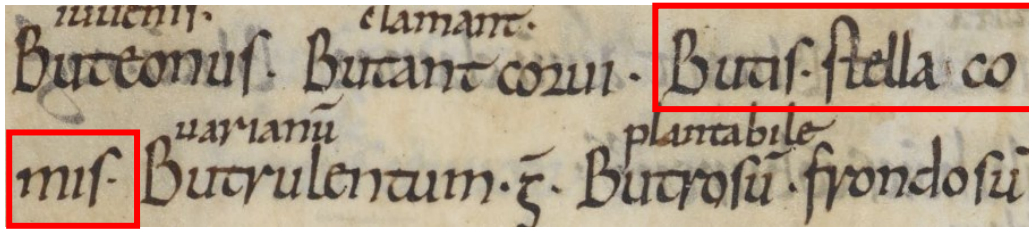 iuuenis· clamant·
Buteonus· Butant corui· Butis· stella co
uarianū plantabile
mis· Butrulentum· ḡ· Butrosū· frondosū